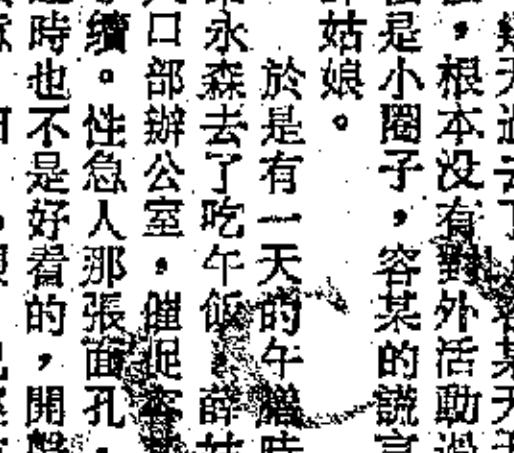 天過去了
，根本没有對外活動過
是小圈子，容某的謊言
姑娘。
於是有一天的午膳時
永森去了吃午飯，薛姑
口部辦公室，催促
續。性急人那張面孔，
時也不是好看的，開聲